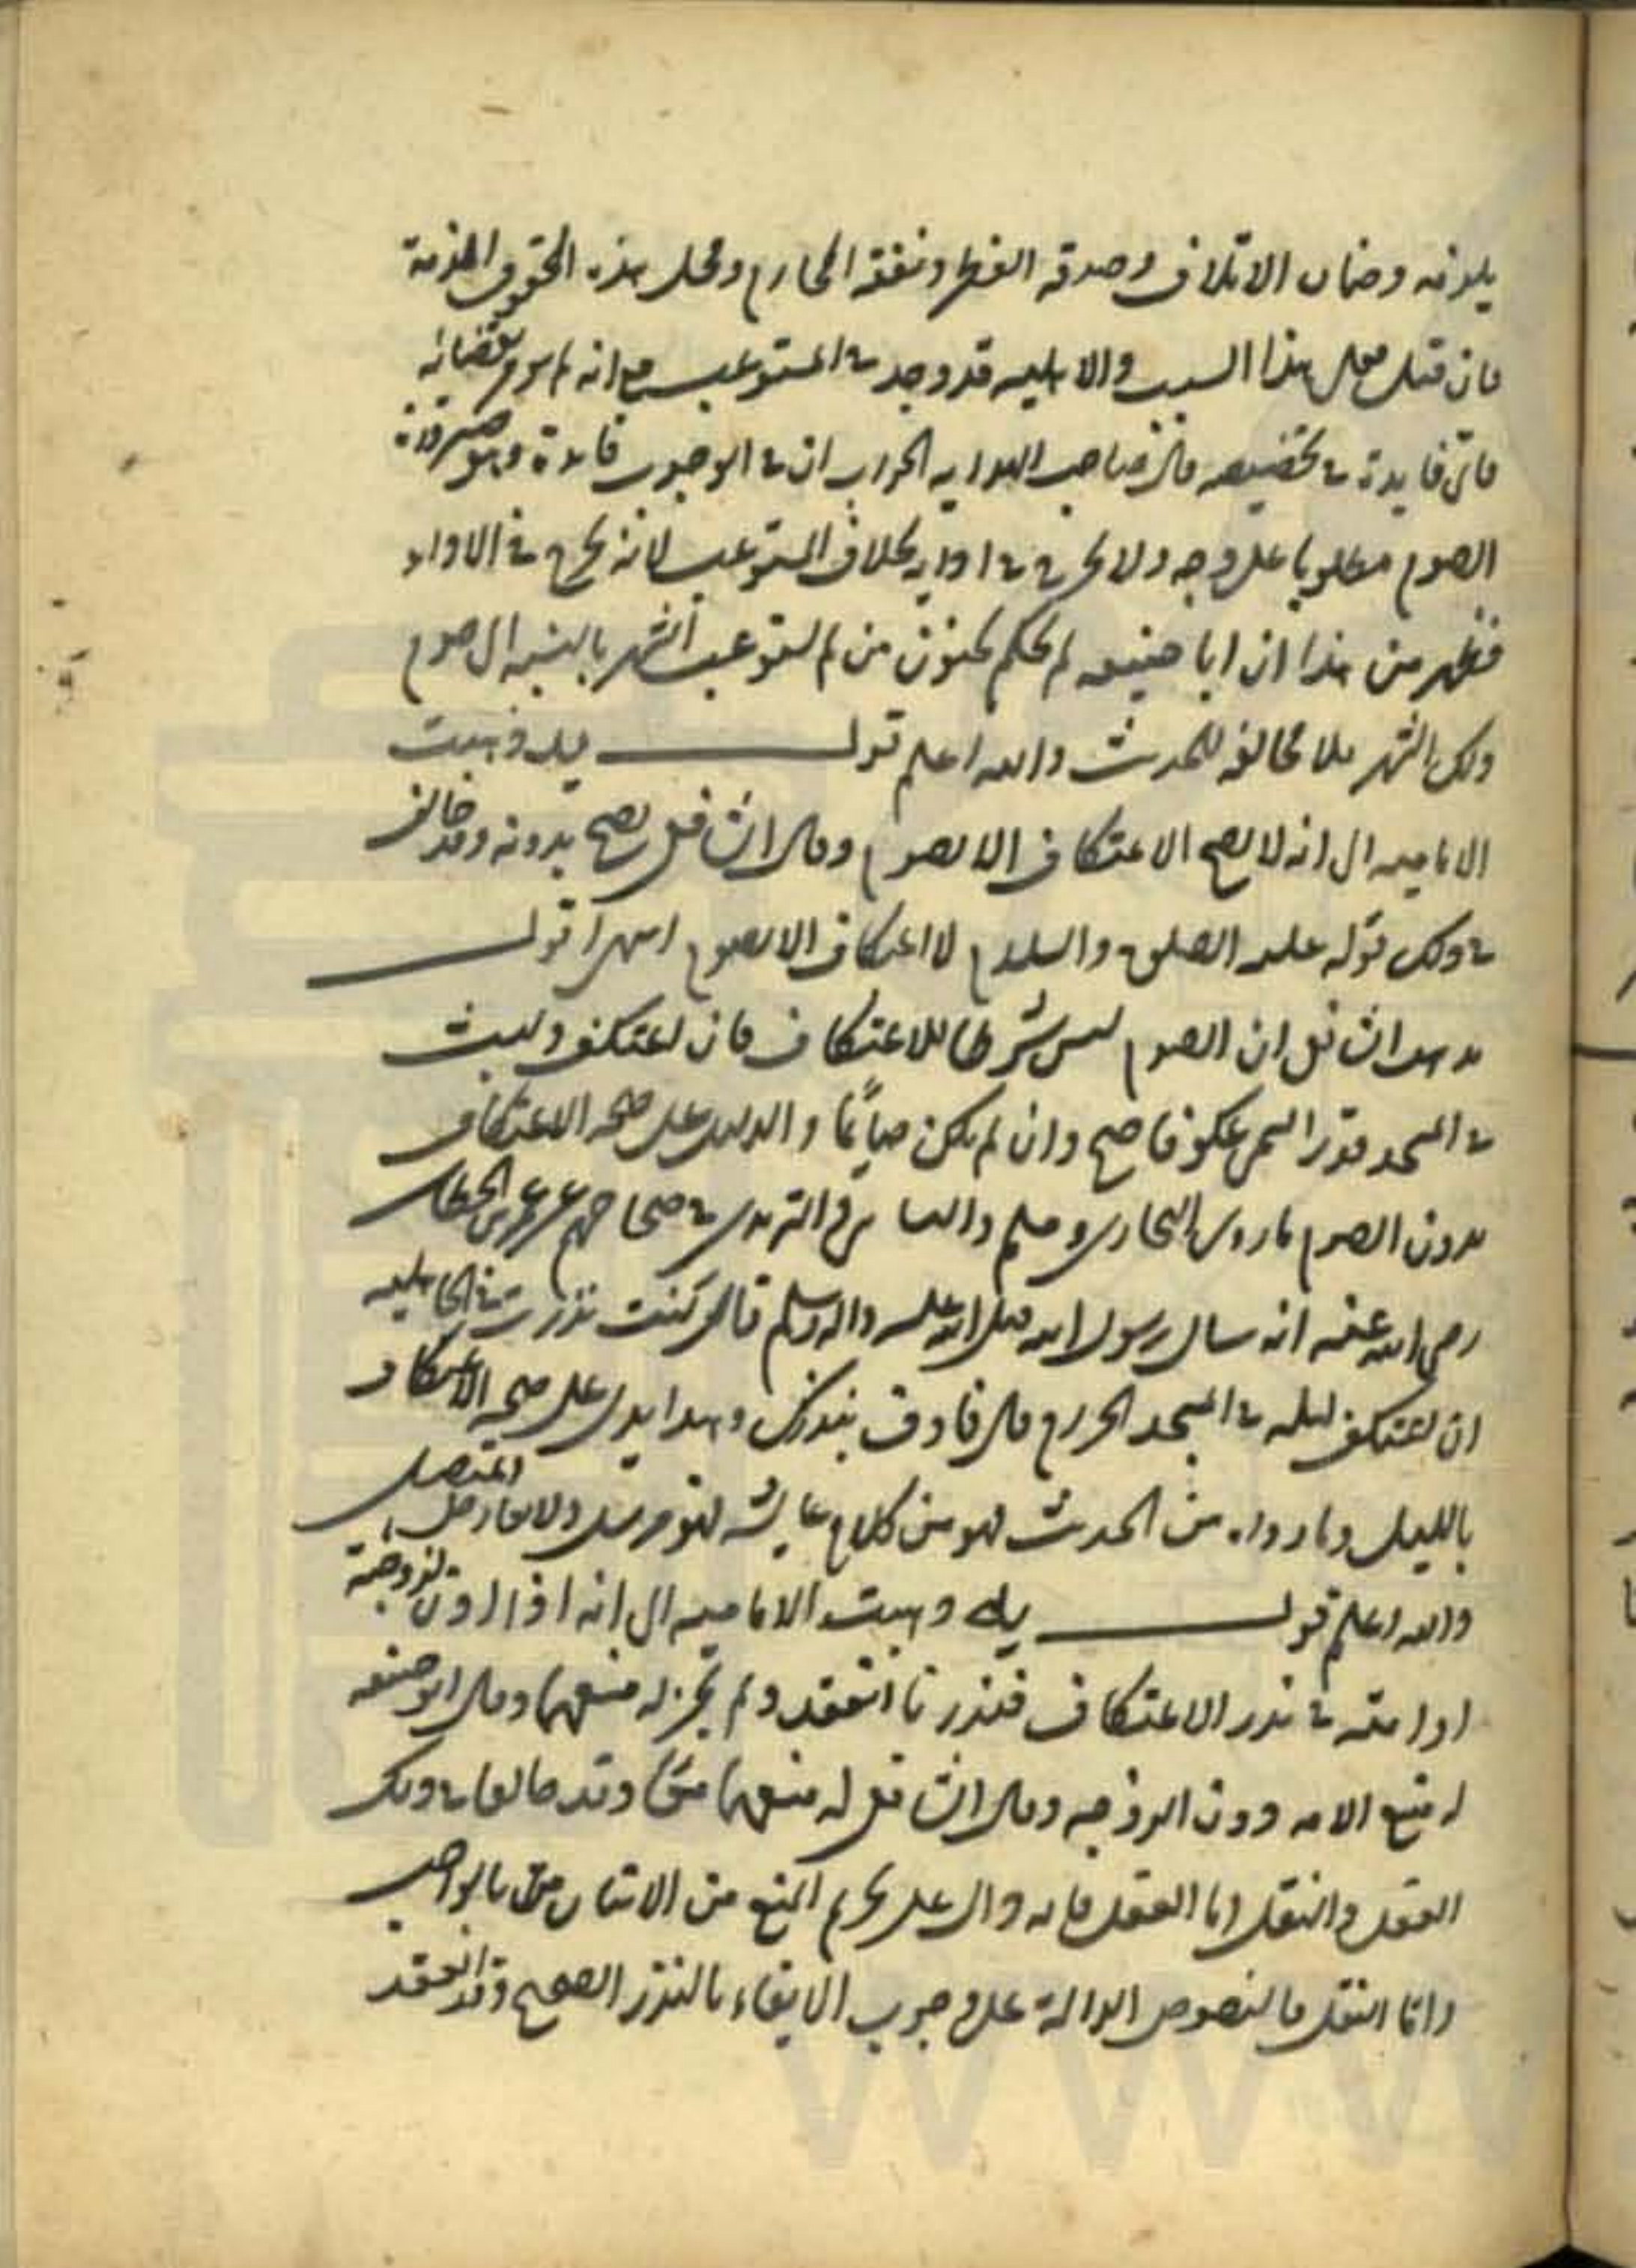 يلزمه وضمان الاتلاف وصدقه الفطر ونفقة المحارم ومحل هذه الحقوق الذمة
فان قيل فعلى هذا السبب والاهلية قد وجد في المستوعب مع انه لم يومر بقضائه
فاى فايدة في تخصيصه قال صاحب الهدايه الجواب ان في الوجوب فايدة وهو صيرورة
الصوم مطلوبا على وجه ولا يحرج في ادايه بخلاف المستوعب لانه يحرج في الاداء
فظهر من هذا ان ابا حنيفه لم يحكم بجنون من لم يستوعب الشهر بالنسبه الى صوم
ذلك الشهر بلا مخالفه للحديث والله اعلم قولــه ذهبت
الاماميه الى انه لا يصح الاعتكاف الا بصوم وقال الشافعى يصح بدونه وقد خالف
في ذلك قوله عليه الصلوة والسلام لا اعتكاف الا بصوم انتهى اقول
مذهب الشافعى ان الصوم ليس شرطا للاعتكاف فان اعتكف ولبث
في المسجد قدرا يسمى عكوفا صح وان لم يكن صايما والدليل على صحة الاعتكاف
بدون الصوم ما روى البخارى ومسلم والنسائى والترمذى في صحاحهم عن عمر بن الخطاب
رضى الله عنه انه سال رسول الله صلى الله عليه واله وسلم قال كنت نذرت في الجاهليه
ان اعتكف ليله في المسجد الحرام قال فاوف بنذرك وهذا يدل على صحة الاعتكاف
بالليل وما رواه من الحديث فهو من كلام عايشه فهو مرسل ولا يعارض المتصل
والله اعلم قولــه ذهبت الاماميه الى انه اذا اذن لزوجته
او امته في نذر الاعتكاف فنذرتا انعقد ولم يجز له منعهما وقال ابو حنيفه
له منع الامه دون الزوجه وقال الشافعى له منعهما معا وقد خالفا في ذلك
العقل والنقل اما العقل فانه دال على تحريم المنع من الاتيان بالواجب
واما النقل فالنصوص الدالة على وجوب الايفاء بالنذر الصحيح وقد انعقد